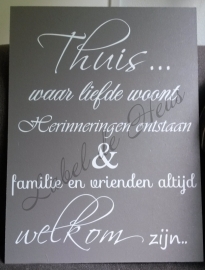 Thuis...
waar liefde woont
Herinneringen ontstaan
&
familie en vrienden altijd
welkom zijn..
Label de Heus